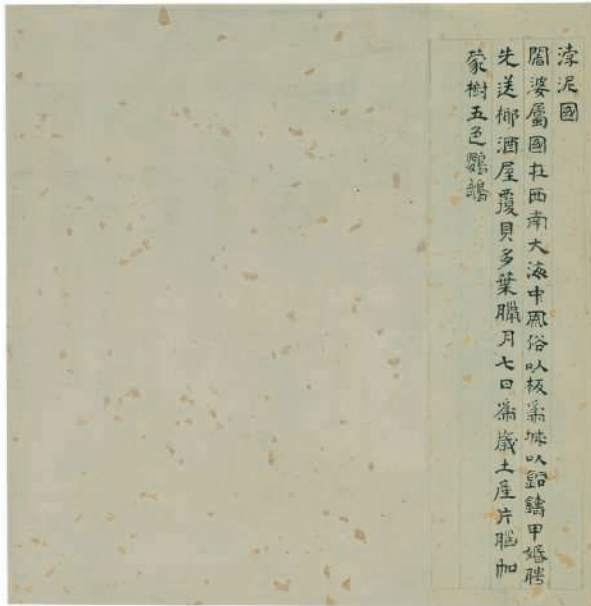 浡泥國
闍婆屬國在西南大海中風俗以板為城以銅鑄甲婚聘
先送椰酒屋覆貝多葉臘月七日為歲土產片腦加
蒙樹五色鸚鵡